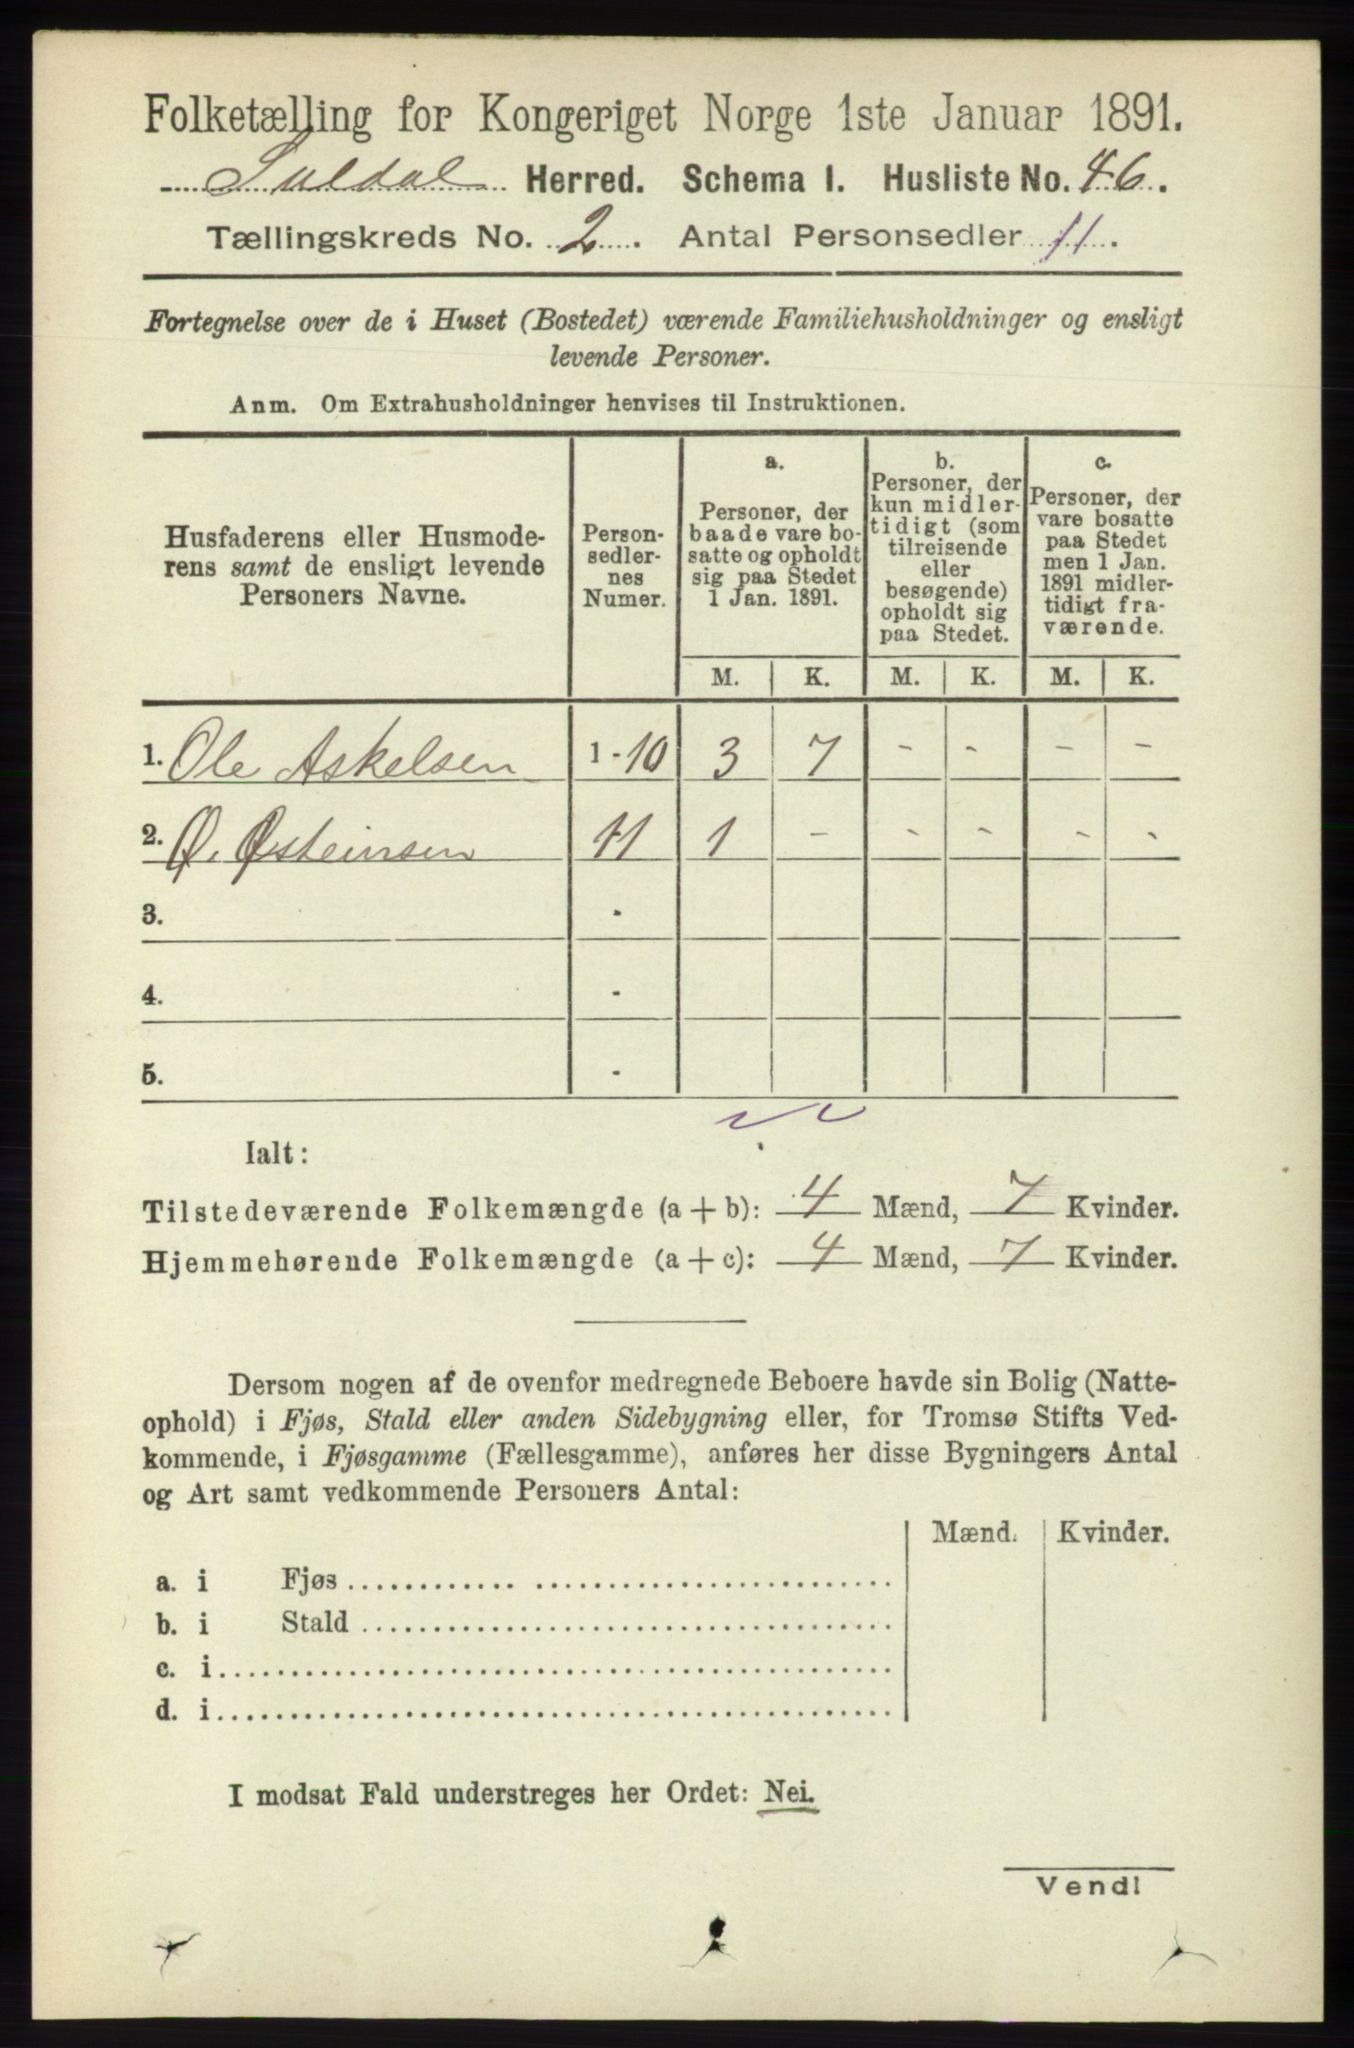 Folketælling for Kongeriget Norge 1ste Januar 1891.
Suldal Herred. Schema I. Husliste No. 46.
Tællingskreds No. 2. Antal Personsedler 11.
Fortegnelse over de i Huset (Bostedet) værende Familiehusholdninger og ensligt
levende Personer.
Anm. Om Extrahusholdninger henvises til Instruktionen.
Husfaderens eller Husmode-
rens samt de ensligt levende
Personers Navne.
Person-
sedler-
nes
Numer.
a.
Personer, der
baade vare bo-
satte og opholdt
sig paa Stedet
1 Jan. 1891.
b.
Personer, der
kun midler-
tidigt (som
tilreisende
eller
besøgende)
opholdt sig
paa Stedet.
c.
Personer, der
vare bosatte
paa Stedet
men 1 Jan.
1891 midler-
tidigt fra-
værende.
M. K. M. K. M. K.
1. Ole Askelsen 1-10 3 7 - - - -
2. Ø. Østeinsen 11 1 - - - - -
3. -
4. -
5. -
Ialt:
Tilstedeværende Folkemængde (a + b): 4 Mænd, 7 Kvinder.
Hjemmehørende Folkemængde (a + c): 4 Mænd, 7 Kvinder.
Dersom nogen af de ovenfor medregnede Beboere havde sin Bolig (Natte-
ophold) i Fjøs, Stald eller anden Sidebygning eller, for Tromsø Stifts Ved-
kommende, i Fjøsgamme (Fællesgamme), anføres her disse Bygningers Antal
og Art samt vedkommende Personers Antal:
Mænd. Kvinder.
a. i Fjøs
b. i Stald
c. i
d. i
I modsat Fald understreges her Ordet: Nei.
Vend!